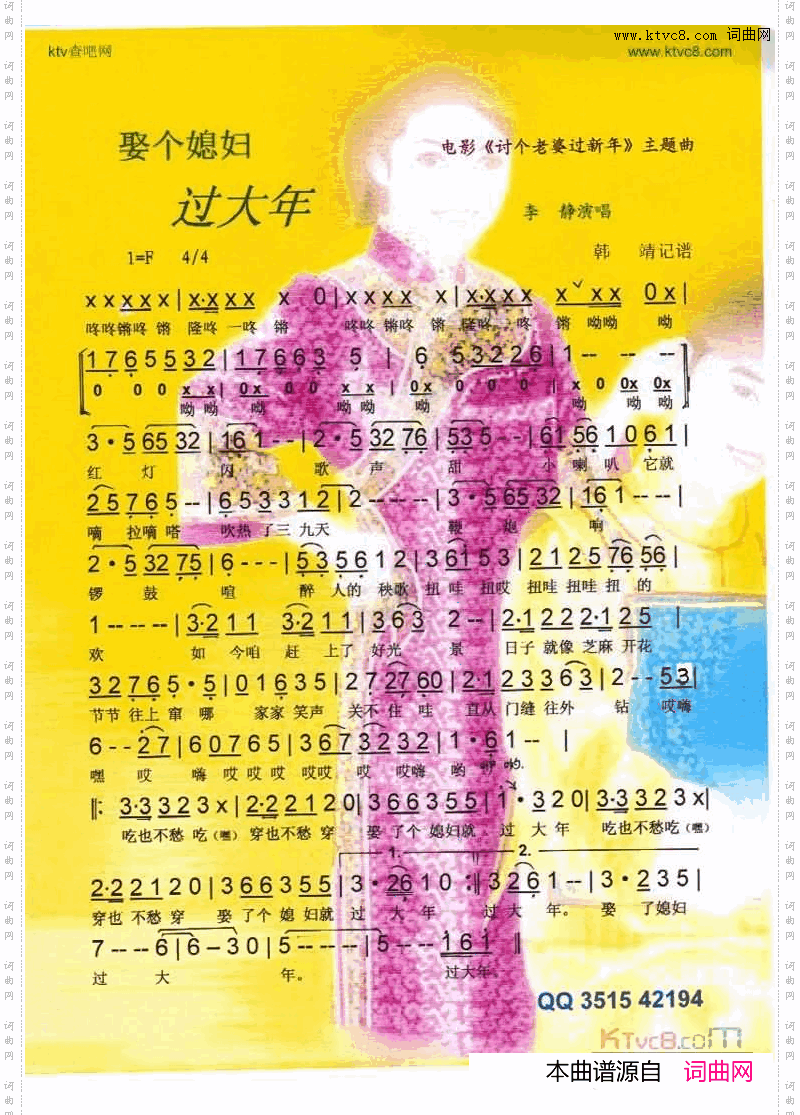 www.ktvc8.com 词曲网
ktv查吧网 www.ktvc8.com
娶个媳妇
过大年
电影《讨个老婆过新年》主题曲
李 静演唱
韩 靖记谱
1=F 4/4
x x x x x | x·x x x x 0 | x x x x x | x·x x x x x x 0 x |
咚咚锵咚 锵 隆咚 一咚 锵 咚咚 锵咚 锵 隆咚 咚 锵 呦呦 呦
1 7 6 5 5 3 2 | 1 7 6 6 3 5 | 6 5 3 2 2 6 | 1 -- -- -- |
0 0 0 x x | 0x 0 0 x x | 0x 0 0 0 | x 0 0x 0x |
呦 呦 呦 呦 呦 呦 呦 呦 呦
3·5 65 32 | 161 - - | 2·5 32 76 | 53 5 - - | 61 56 1 0 6 1 |
红 灯 闪 歌 声 甜 小 喇 叭 它就
2 5 7 6 5 -- | 6 5 3 3 1 2 | 2 -- -- -- | 3·5 65 32 | 161 -- -- |
嘀 拉嘀 嗒 吹热 了三 九天 鞭 炮 响
2·5 32 75 | 6 - - - | 5 3 5 6 1 2 | 3 61 5 3 | 2 1 2·5 76 56 |
锣 鼓 喧 醉 人的 秧歌 扭 哇 扭哎 扭哇 扭哇 扭 的
1 -- -- -- | 3·2 1 1 3·2 1 1 | 3 6 3 2 -- | 2·1 2 2 2·1 2 5 |
欢 如 今咱 赶 上了 好光 景 日子 就像 芝麻 开花
3 2 7 6 5·5 | 0 1 6 3 5 | 2 7 2 7 6 0 | 2·1 2 3 3 6 3 | 2 - - 5 3 |
节节 往上 窜 哪 家家 笑声 关不 住 哇 直从 门缝 往外 钻 哎嗨
6 - - 2 7 | 6 0 7 6 5 | 3 6 7 3 2 3 2 | 1·6 1 -- |
嘿 哎 嗨 哎 哎 哎 哎哎 哎 哎嗨 哟 哟.
‖: 3·3 3 2 3 x | 2·2 2 1 2 0 | 3 6 6 3 5 5 | 1·3 2 0 | 3·3 3 2 3 x |
吃也不愁 吃（嘿） 穿也不愁 穿 娶 了个 媳妇就 过 大 年 吃也不愁吃（嘿）
1. 2.
2·2 2 1 2 0 | 3 6 6 3 5 5 | 3·26 1 0 :‖ 3 2 6 1 -- | 3·2 3 5 |
穿也 不愁 穿 娶 了个 媳 妇就 过 大 年 过 大 年。 娶 了媳妇
7 -- -- -- 6 | 6 -- 3 0 | 5 -- -- -- | 5 -- -- 1 6 1 ‖
过 大 年。 过大年
QQ 3515 42194
KTvc8.com
本曲谱源自 词曲网